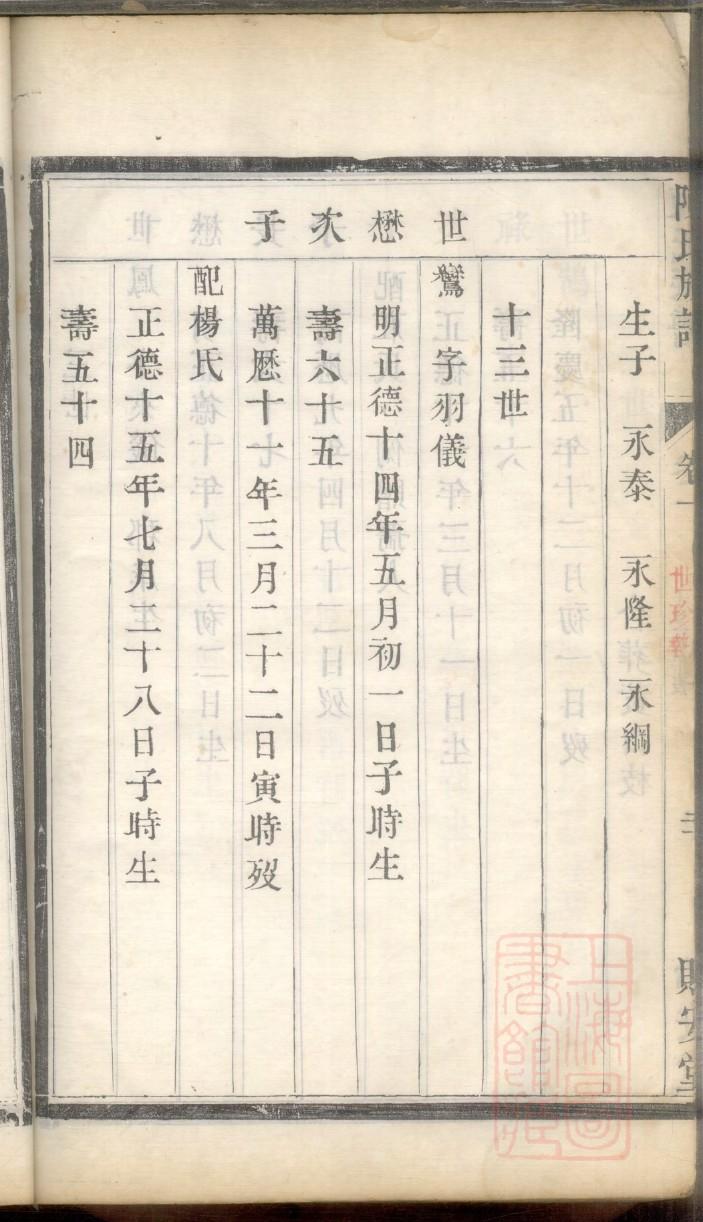 陳氏族譜
卷一
世珍執
三
賜安堂
生子 永泰 永隆 永綱
十三世
世懋次子
鸞字羽儀
明正德十四年五月初一日子時生
壽六十五
萬厯十一年三月二十二日寅時歿
配楊氏
正德十五年七月二十八日子時生
壽五十四
上海圖書館藏